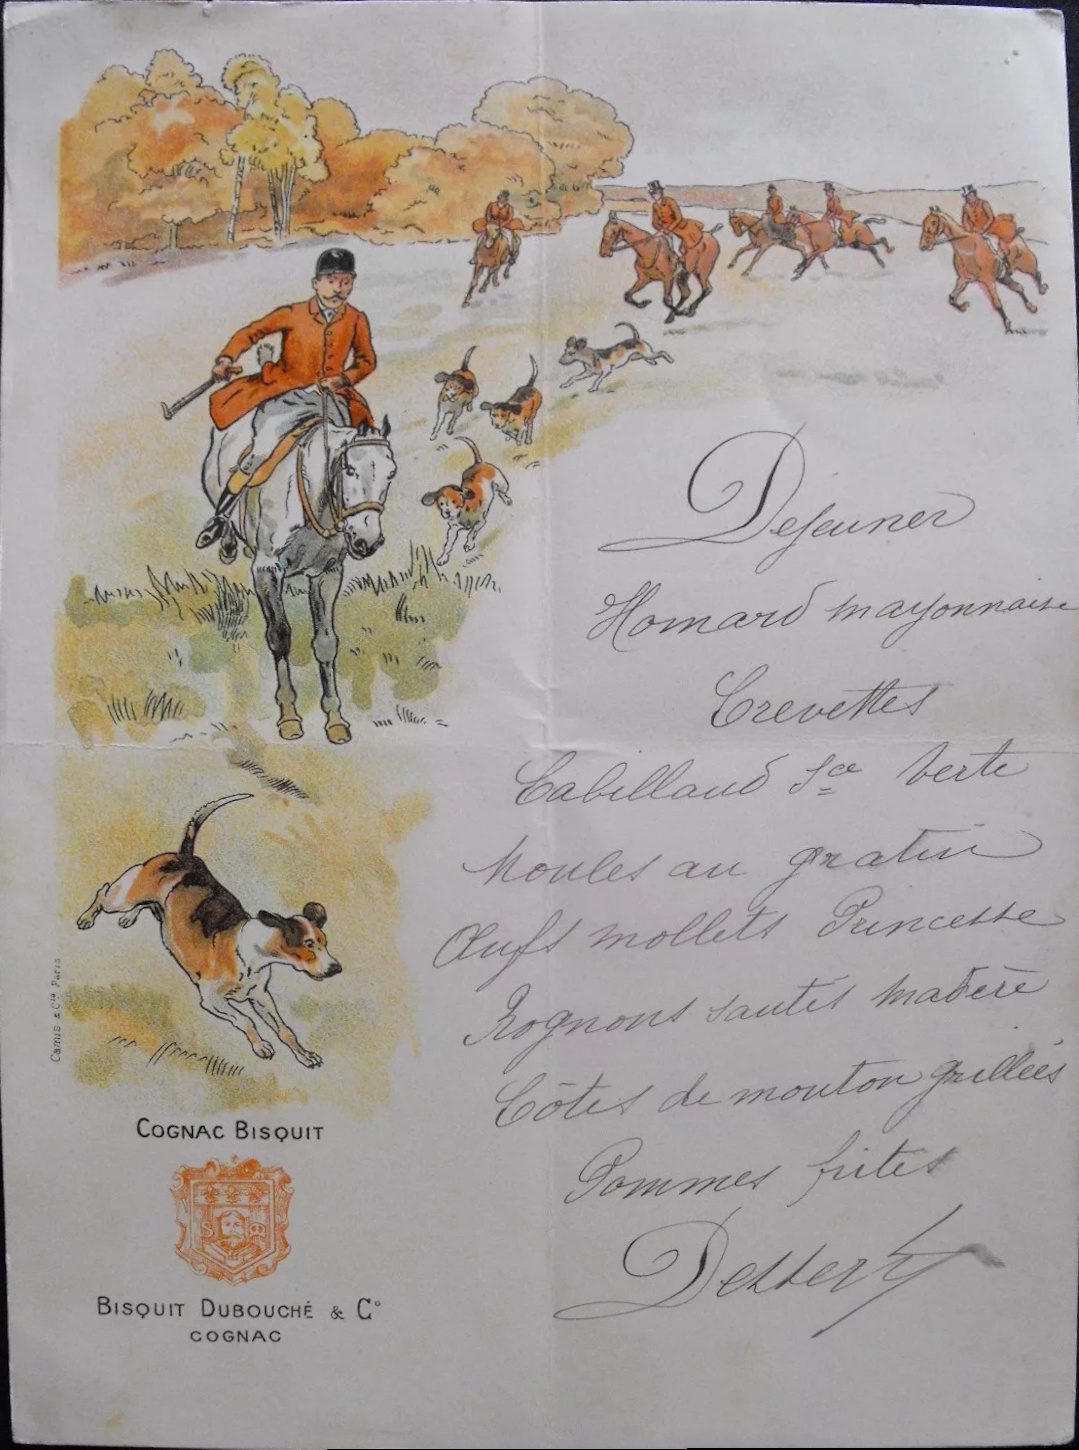 Dejeuner
Homard mayonnaise
Crevettes
Cabillaud Sce verte
Moules au gratin
Œufs mollets Princesse
Rognons sautés madère
Côtes de mouton grillées
Pommes frites
Dessert
Camis & Cie Paris
COGNAC BISQUIT
BISQUIT DUBOUCHÉ & Co
COGNAC